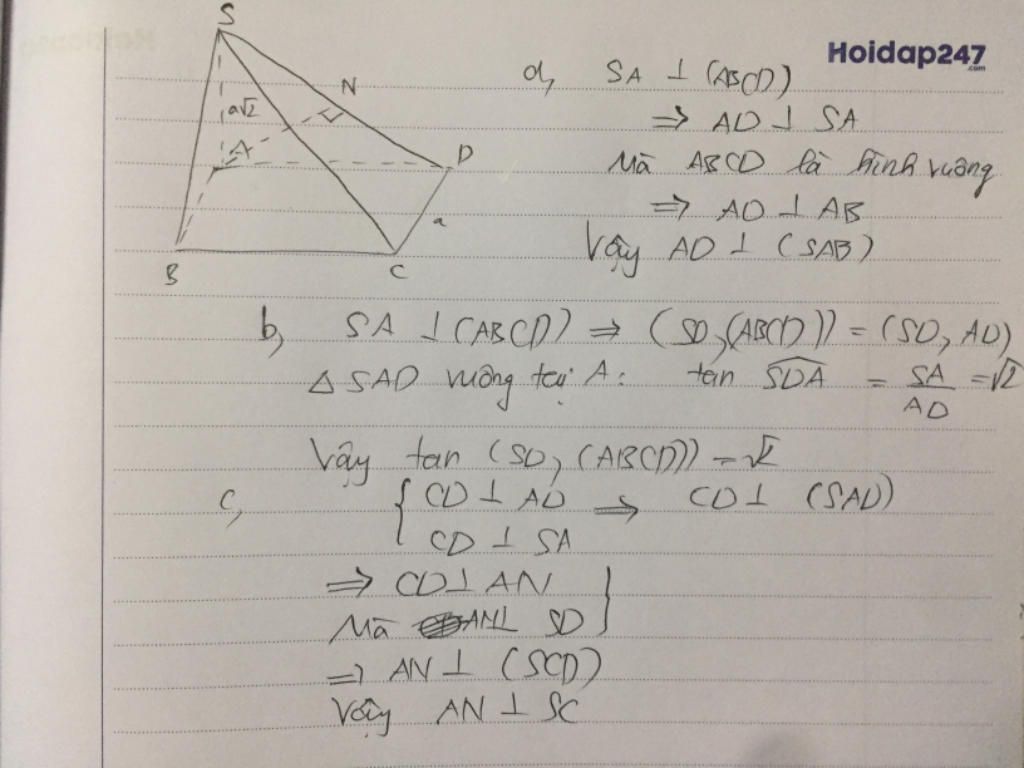 S
Hoidap247
.com
a, SA ⊥ (ABCD)
N
a√2
⇒ AD ⊥ SA
A
D
Mà ABCD là hình vuông
⇒ AD ⊥ AB
a
Vậy AD ⊥ (SAB)
B
C
b, SA ⊥ (ABCD) ⇒ (SD,(ABCD)) = (SD, AD)
△ SAD vuông tại A: tan SDA = SA/AD = √2
Vậy tan (SD, (ABCD)) = √2
c, { CD ⊥ AD ⇒ CD ⊥ (SAD)
CD ⊥ SA
⇒ CD ⊥ AN }
Mà AN ⊥ SD
⇒ AN ⊥ (SCD)
Vậy AN ⊥ SC